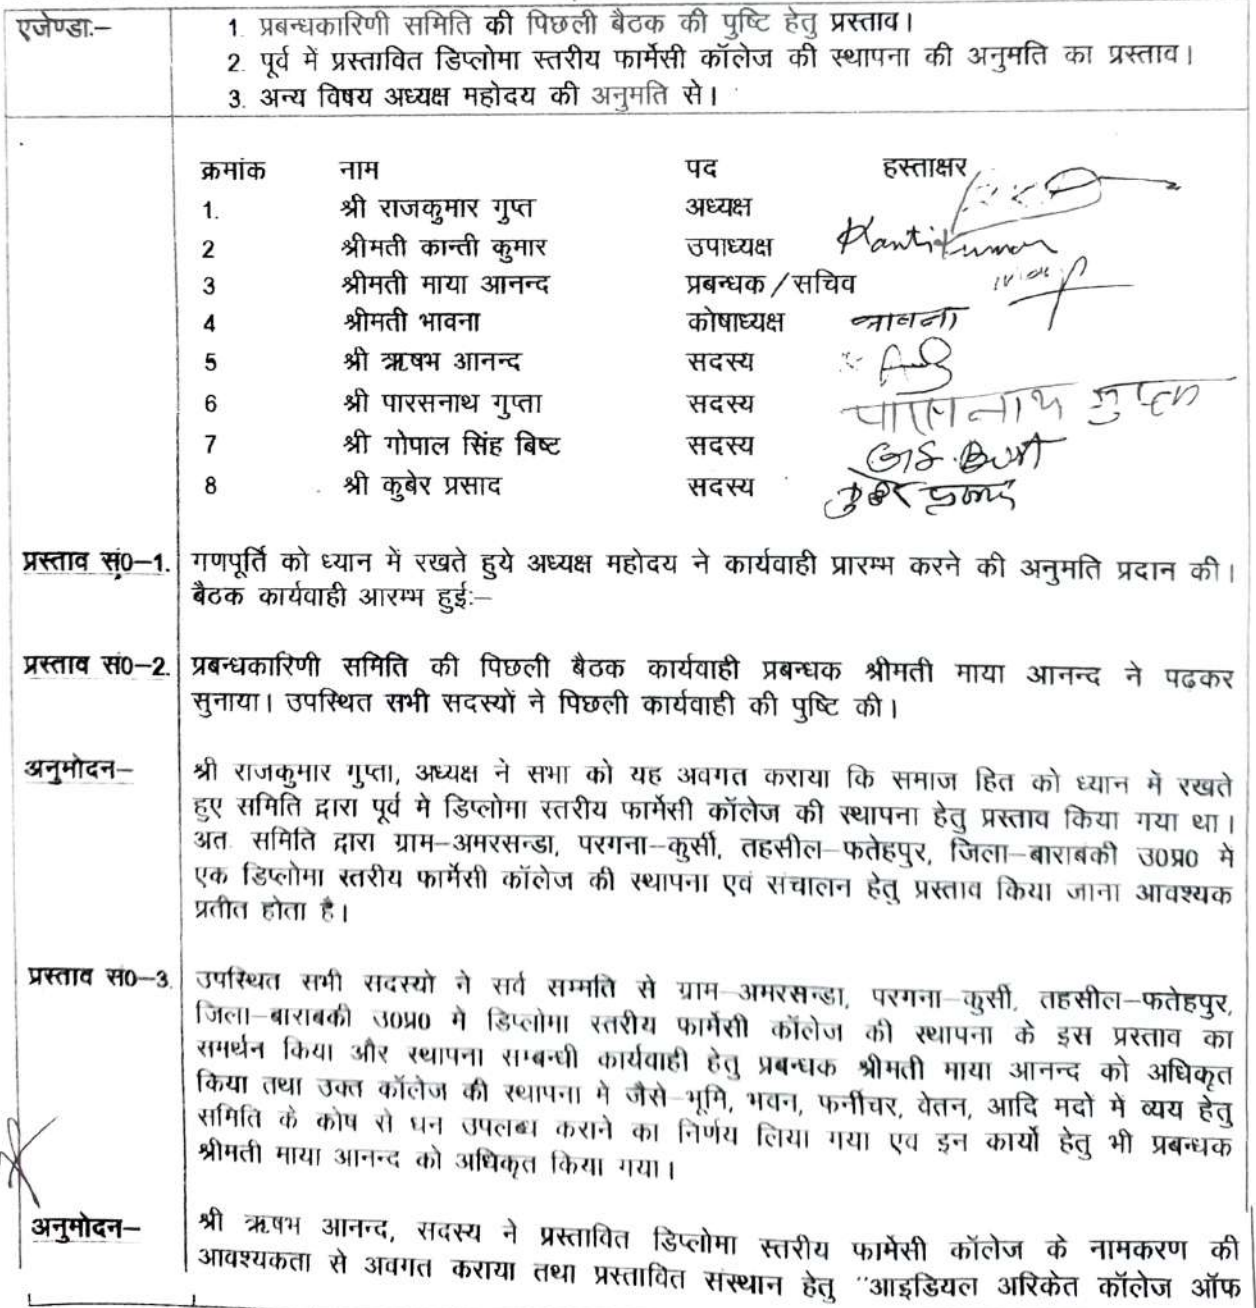 एजेण्डाः– 1. प्रबन्धकारिणी समिति की पिछली बैठक की पुष्टि हेतु प्रस्ताव।
2. पूर्व में प्रस्तावित डिप्लोमा स्तरीय फार्मेसी कॉलेज की स्थापना की अनुमति का प्रस्ताव।
3. अन्य विषय अध्यक्ष महोदय की अनुमति से।
क्रमांक नाम पद हस्ताक्षर
1. श्री राजकुमार गुप्त अध्यक्ष
2 श्रीमती कान्ती कुमार उपाध्यक्ष Kanti Kumar
3 श्रीमती माया आनन्द प्रबन्धक/सचिव
4 श्रीमती भावना कोषाध्यक्ष भावना
5 श्री ऋषभ आनन्द सदस्य
6 श्री पारसनाथ गुप्ता सदस्य पारसनाथ गुप्ता
7 श्री गोपाल सिंह बिष्ट सदस्य
8 श्री कुबेर प्रसाद सदस्य
प्रस्ताव सं0–1. गणपूर्ति को ध्यान में रखते हुये अध्यक्ष महोदय ने कार्यवाही प्रारम्भ करने की अनुमति प्रदान की।
बैठक कार्यवाही आरम्भ हुईः–
प्रस्ताव सं0–2. प्रबन्धकारिणी समिति की पिछली बैठक कार्यवाही प्रबन्धक श्रीमती माया आनन्द ने पढकर
सुनाया। उपस्थित सभी सदस्यों ने पिछली कार्यवाही की पुष्टि की।
अनुमोदन– श्री राजकुमार गुप्ता, अध्यक्ष ने सभा को यह अवगत कराया कि समाज हित को ध्यान में रखते
हुए समिति द्वारा पूर्व मे डिप्लोमा स्तरीय फार्मेसी कॉलेज की स्थापना हेतु प्रस्ताव किया गया था।
अत समिति द्वारा ग्राम–अमरसन्डा, परगना–कुर्सी, तहसील–फतेहपुर, जिला–बाराबकी उ0प्र0 मे
एक डिप्लोमा स्तरीय फार्मेसी कॉलेज की स्थापना एवं संचालन हेतु प्रस्ताव किया जाना आवश्यक
प्रतीत होता है।
प्रस्ताव स0–3. उपस्थित सभी सदस्यो ने सर्व सम्मति से ग्राम–अमरसन्डा, परगना–कुर्सी, तहसील–फतेहपुर,
जिला–बाराबकी उ0प्र0 मे डिप्लोमा स्तरीय फार्मेसी कॉलेज की स्थापना के इस प्रस्ताव का
समर्थन किया और स्थापना सम्बन्धी कार्यवाही हेतु प्रबन्धक श्रीमती माया आनन्द को अधिकृत
किया तथा उक्त कॉलेज की स्थापना मे जैसे–भूमि, भवन, फर्नीचर, वेतन, आदि मदों में व्यय हेतु
समिति के कोष से धन उपलब्ध कराने का निर्णय लिया गया एव इन कार्यो हेतु भी प्रबन्धक
श्रीमती माया आनन्द को अधिकृत किया गया।
अनुमोदन– श्री ऋषभ आनन्द, सदस्य ने प्रस्तावित डिप्लोमा स्तरीय फार्मेसी कॉलेज के नामकरण की
आवश्यकता से अवगत कराया तथा प्रस्तावित संस्थान हेतु "आइडियल अरिकेत कॉलेज ऑफ